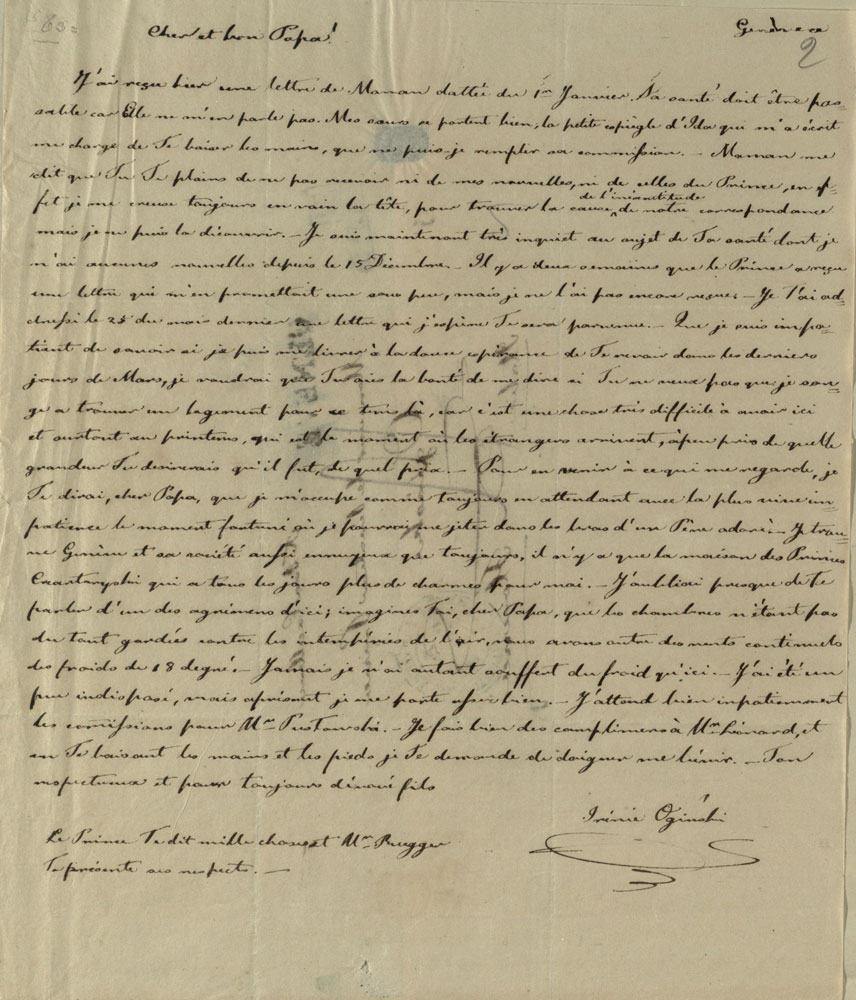 63=
Cher et bon Papa!
Genève ce
2
J'ai reçu hier une lettre de Maman dattée du 1er Janvier. Sa santé doit être pas=
sable car Elle ne m'en parle pas. Mes sœurs se portent bien, la petite espiègle d'Ida qui m'a écrit
me charge de Te baiser les mains, que ne puis je remplir sa commission. — Maman me
dit que Tu Te plains de ne pas recevoir ni de mes nouvelles, ni de celles du Prince, en ef=
fet je me creuse toujours en vain la tête, pour trouver la cause de l'inexactitude de notre correspondance
mais je ne puis la découvrir. — Je suis maintenant très inquiet au sujet de Ta santé dont je
n'ai aucunes nouvelles depuis le 15 Décembre. — Il y a deux semaines que le Prince a reçu
une lettre qui m'en promettait une sous peu, mais je ne l'ai pas encore reçue. — Je T'ai ad=
dressé le 25 du mois dernier une lettre qui j'espère Te sera parvenue. — Que je suis impa=
tient de savoir si je puis me livrer à la douce espérance de Te revoir dans les derniers
jours de Mars, je voudrai que Tu aies la bonté de me dire si Tu ne veux pas que je son=
ge a trouver un logement pour ce tems là, car c'est une chose très difficile à avoir ici
et surtout au printems, qui est le moment où les étrangers arrivent, à peu près de quelle
grandeur Tu desirerais qu'il fut, de quel prix. — Pour en venir à ce qui me regarde, je
Te dirai, cher Papa, que je m'occupe comme toujours en attendant avec la plus vive im=
patience le moment fortuné où je pourrai me jeter dans les bras d'un Père adoré. — Je trou=
ve Genève et sa société aussi ennuyeux que toujours, il n'y a que la maison des Princes
Czartoryski qui a tous les jours plus de charmes pour moi. — J'oubliai presque de Te
parler d'un des agrémens d'ici; imagines Toi, cher Papa, que les chambres n'étant pas
du tout gardées contre les intempéries de l'air, nous avons outre des vents continuels
des froids de 18 degré. — Jamais je n'ai autant souffert du froid qu'ici. — J'ai été un
peu indisposé, mais aprésent je me porte assez bien. — J'attend bien impatiemment
les comissions pour Mr Pustowski. — Je fais bien des complimens à Mr Léonard, et
en Te baisant les mains et les pieds je Te demande de daigner me bénir. — Ton
respectueux et pour toujours dévoué fils
Irénée Ogiński
Le Prince Te dit mille choses et Mr Ruegger
Te présente ses respects. —